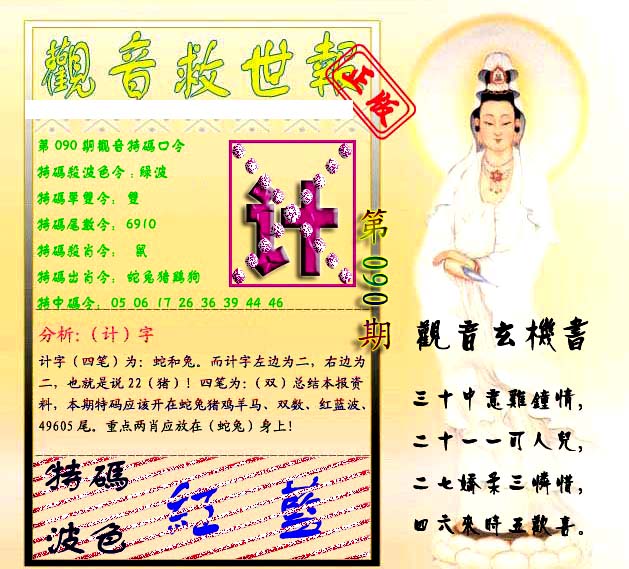 觀音救世報
正版
第090期觀音特碼口令
特碼殺波色令：綠波
特碼單雙令：雙
特碼尾數令：6910
特碼殺肖令：鼠
特碼出肖令：蛇兔猪鷄狗
特中碼令：05 06 17 26 36 39 44 46
计
第090期
分析:（计）字
计字（四笔）为：蛇和兔。而计字左边为二，右边为
二，也就是说22（猪）！四笔为：（双）总结本报资
料，本期特码应该开在蛇兔猪鸡羊马、双数、红蓝波、
49605尾。重点两肖应放在（蛇兔）身上！
特碼
波色
紅 藍
觀音玄機書
三十中意難鐘情，
二十一一可人兒，
二七嬌柔三憐惜，
四六來時五歡喜。